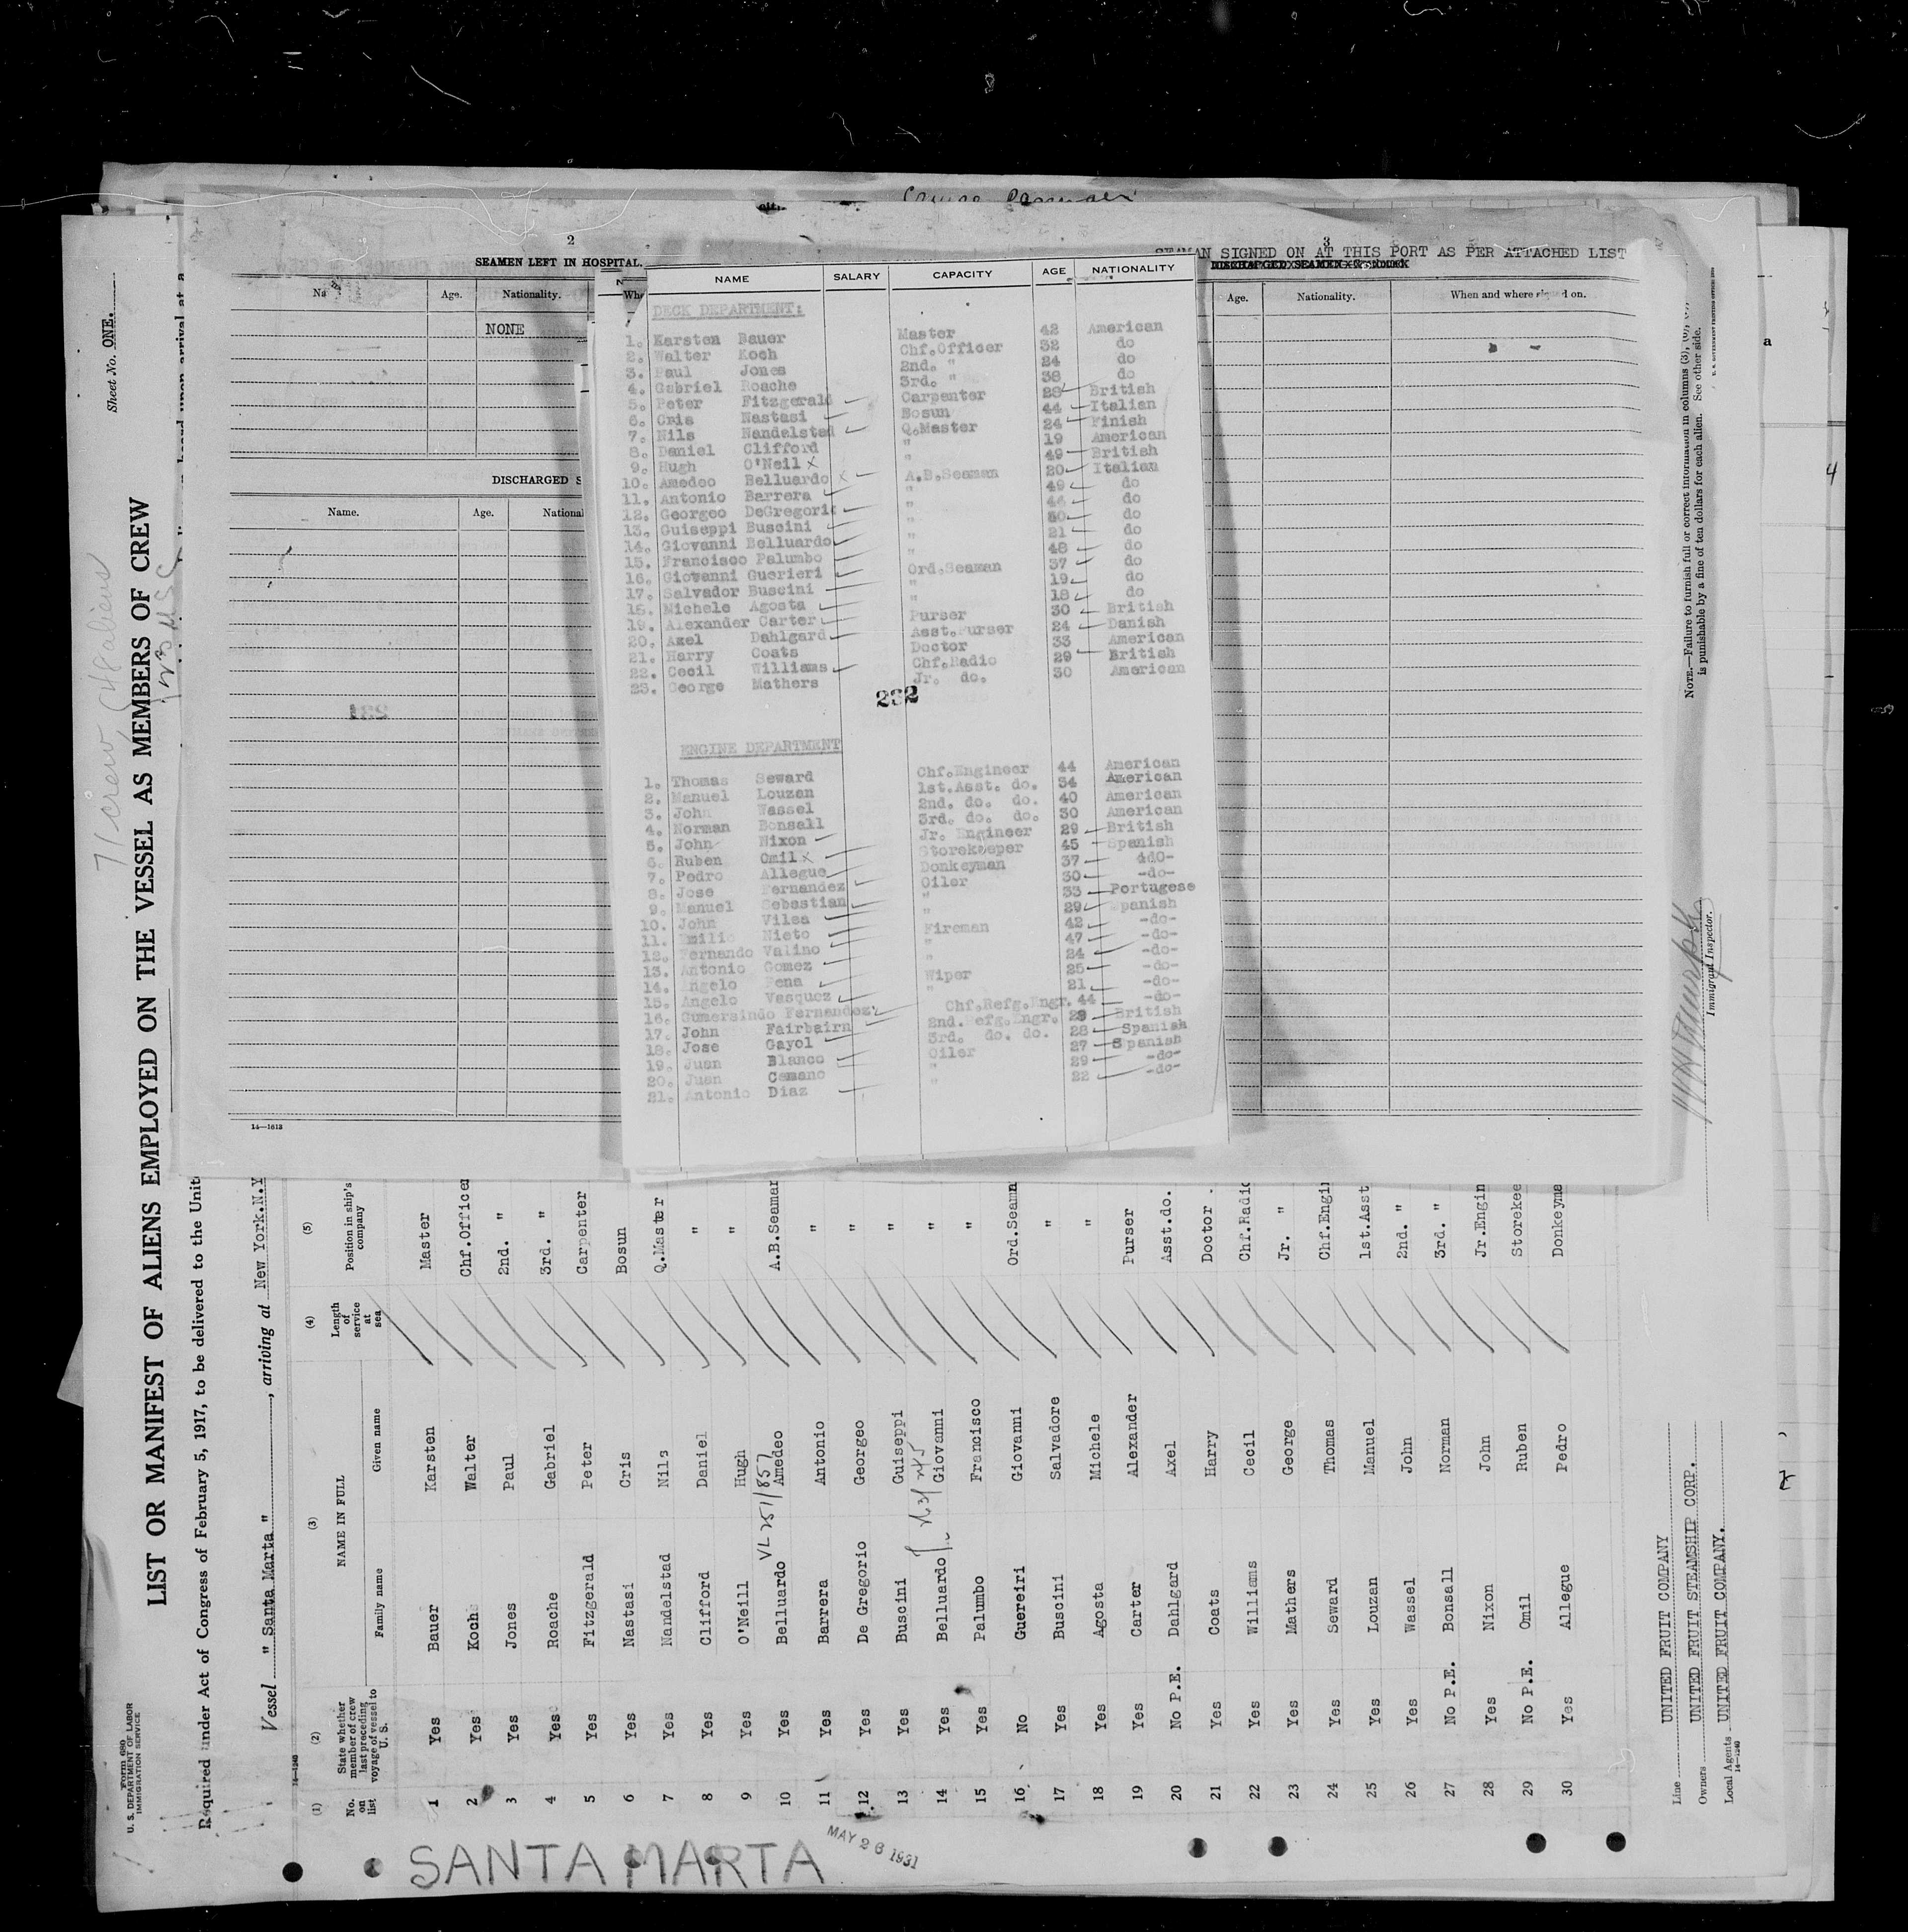 2
SEAMEN LEFT IN HOSPITAL.
Age. Nationality.
NONE
DISCHARGED
Name. Age.
14—1613
3
SIGNED ON AT THIS PORT AS PER ATTACHED LIST
Age. Nationality. When and where signed on.
NAME SALARY CAPACITY AGE NATIONALITY
DECK DEPARTMENT:
1. Karsten Bauer Master 42 American
2. Walter Koch Chf.Officer 32 do
3. Paul Jones 2nd. " 24 do
4. Gabriel Roache 3rd. " 38 do
5. Peter Fitzgerald Carpenter 28 British
6. Cris Nastasi Bosun 44 Italian
7. Nils Nandelstad Q.Master 24 Finish
8. Daniel Clifford " 19 American
9. Hugh O'Neil X " 49 British
10. Amedeo Belluardo X A.B.Seaman 20 Italian
11. Antonio Barrera " 49 do
12. Georgeo DeGregorio " 44 do
13. Guiseppi Buscini " do
14. Giovanni Belluardo " 21 do
15. Francisco Palumbo " 48 do
16. Giovanni Guerieri Ord.Seaman 37 do
17. Salvador Buscini " 19 do
18. Michele Agosta " 18 do
19. Alexander Carter Purser 30 British
20. Axel Dahlgard Asst.Purser 24 Danish
21. Harry Coats Doctor 33 American
22. Cecil Williams Chf.Radio 29 British
23. George Mathers Jr. do. 30 American
232
ENGINE DEPARTMENT
1. Thomas Seward Chf.Engineer 44 American
2. Manuel Louzan 1st.Asst. do. 34 American
3. John Wassel 2nd. do. do. 40 American
4. Norman Bonsall 3rd. do. do. 30 American
5. John Nixon Jr. Engineer 29 British
6. Ruben Omil X Storekeeper 45 Spanish
7. Pedro Allegue Donkeyman 37 -do-
8. Jose Fernandez Oiler 30 -do-
9. Manuel Sebastian " 33 Portugese
10. John Vilea " 29 Spanish
11. Emilio Nieto Fireman 42 -do-
12. Fernando Valino " 47 -do-
13. Antonio Gomez " 24 -do-
14. Angelo Pena Wiper 25 -do-
15. Angelo Vasquez " 21 -do-
16. Gumersindo Fernandez Chf.Refg.Engr. 44 -do-
17. John Fairbairn 2nd.Refg.Engr. British
18. Jose Gayol 3rd. do. do. 28 Spanish
19. Juan Blanco Oiler 27 Spanish
20. Juan Camano " 29 -do-
21. Antonio Diaz " 22 -do-
Form 680
U. S. DEPARTMENT OF LABOR
IMMIGRATION SERVICE
Sheet No. ONE.
71 crew
LIST OR MANIFEST OF ALIENS EMPLOYED ON THE VESSEL AS MEMBERS OF CREW
Required under Act of Congress of February 5, 1917, to be delivered to the
Vessel " Santa Marta ", arriving at New York.N.Y
(1) (2) (3) (4) (5)
No. on list State whether member of crew last preceding voyage of vessel to U. S. NAME IN FULL Length of service at sea Position in ship's company
Family name Given name
1 Yes Bauer Karsten Master
2 Yes Koch Walter Chf.Officer
3 Yes Jones Paul 2nd. "
4 Yes Roache Gabriel 3rd. "
5 Yes Fitzgerald Peter Carpenter
6 Yes Nastasi Cris Bosun
7 Yes Nandelstad Nils Q.Master
8 Yes Clifford Daniel "
9 Yes O'Neill Hugh "
VL 251/857
10 Yes Belluardo Amedeo A.B.Seaman
11 Yes Barrera Antonio "
12 Yes De Gregorio Georgeo "
13 Yes Buscini Guiseppi "
14 Yes Belluardo Giovanni "
15 Yes Palumbo Francisco "
16 No Guereiri Giovanni Ord.Seamn
17 Yes Buscini Salvadore "
18 Yes Agosta Michele "
19 Yes Carter Alexander Purser
20 No P.E. Dahlgard Axel Asst.do.
21 Yes Coats Harry Doctor .
22 Yes Williams Cecil Chf.Radio
23 Yes Mathers George Jr. "
24 Yes Seward Thomas Chf.Engi
25 Yes Louzan Manuel 1st.Asst
26 Yes Wassel John 2nd. "
27 No P.E. Bonsall Norman 3rd. "
28 Yes Nixon John Jr.Engin
29 No P.E. Omil Ruben Storekee
30 Yes Allegue Pedro Donkeyma
Line UNITED FRUIT COMPANY
Owners UNITED FRUIT STEAMSHIP CORP.
Local Agents UNITED FRUIT COMPANY.
14—1240
Immigrant Inspector.
NOTE.—Failure to furnish full or correct information in columns (3),
is punishable by a fine of ten dollars for each alien. See other side.
SANTA MARTA
MAY 26 1931